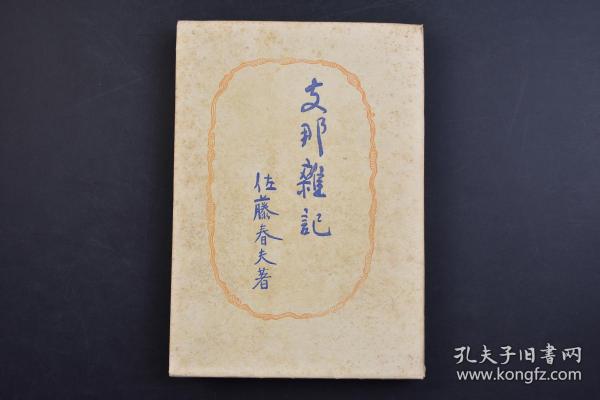 支那雜記
佐藤春夫著
孔夫子旧書网
www.kongfz.com